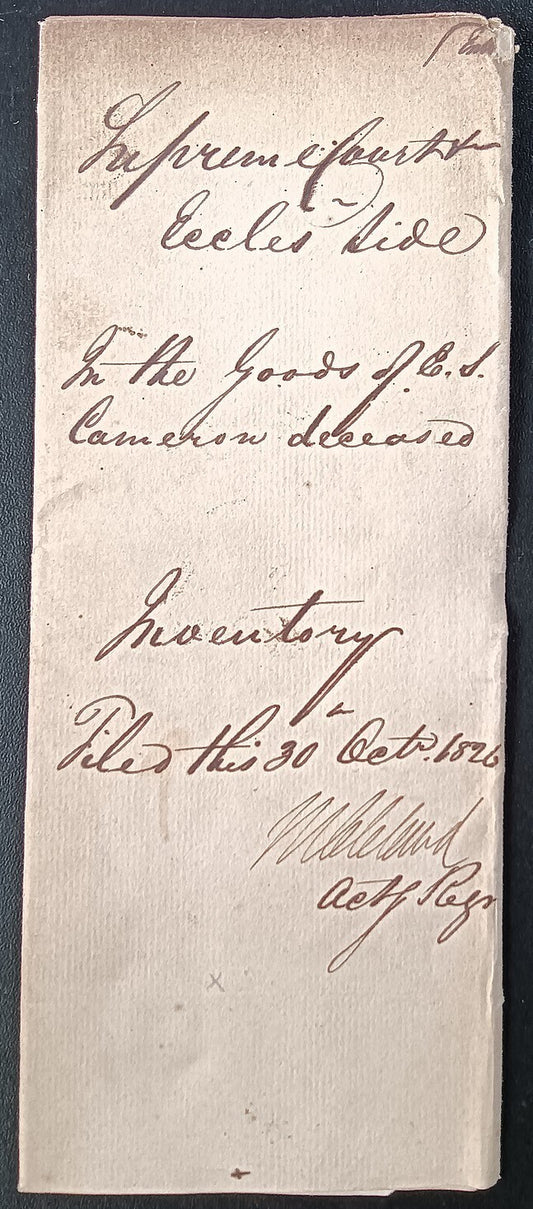 Supreme Court &
Eccles side
In the Goods of E. S.
Cameron deceased
Inventory
Filed this 30th Octr. 1826
Actg Regr